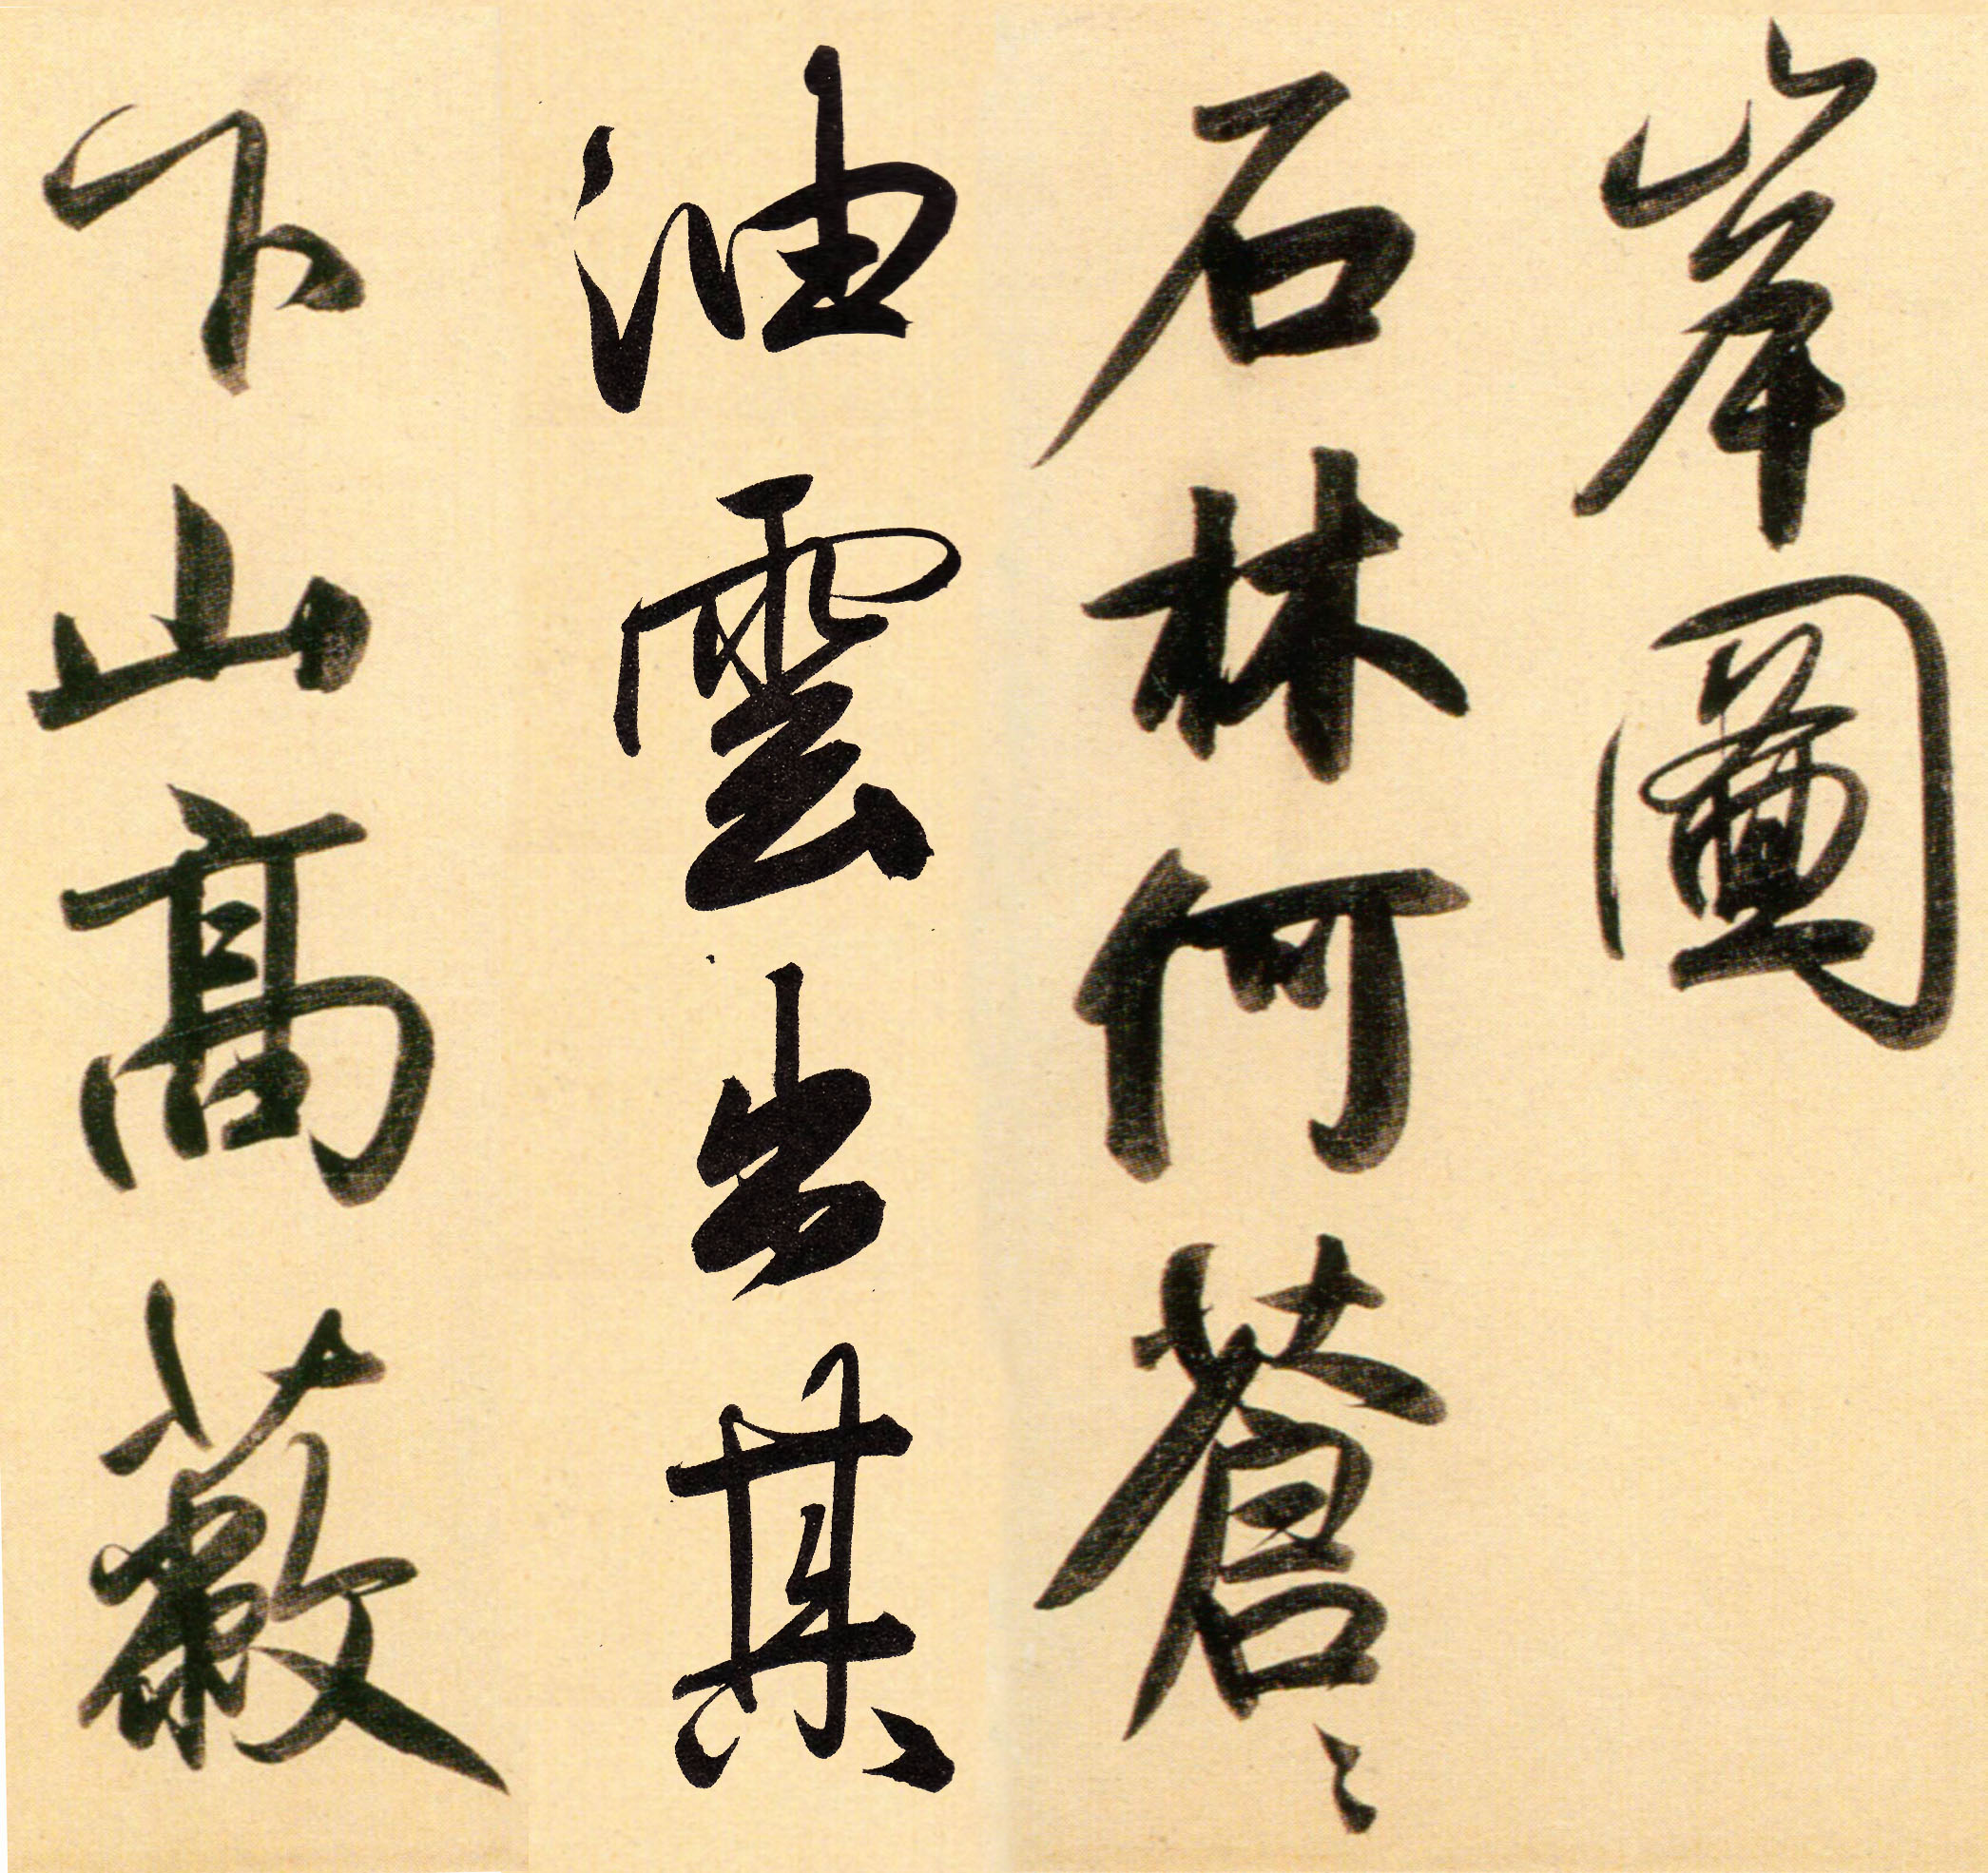 岸圖
石林何蒼々
油雲出其
下山高蔽